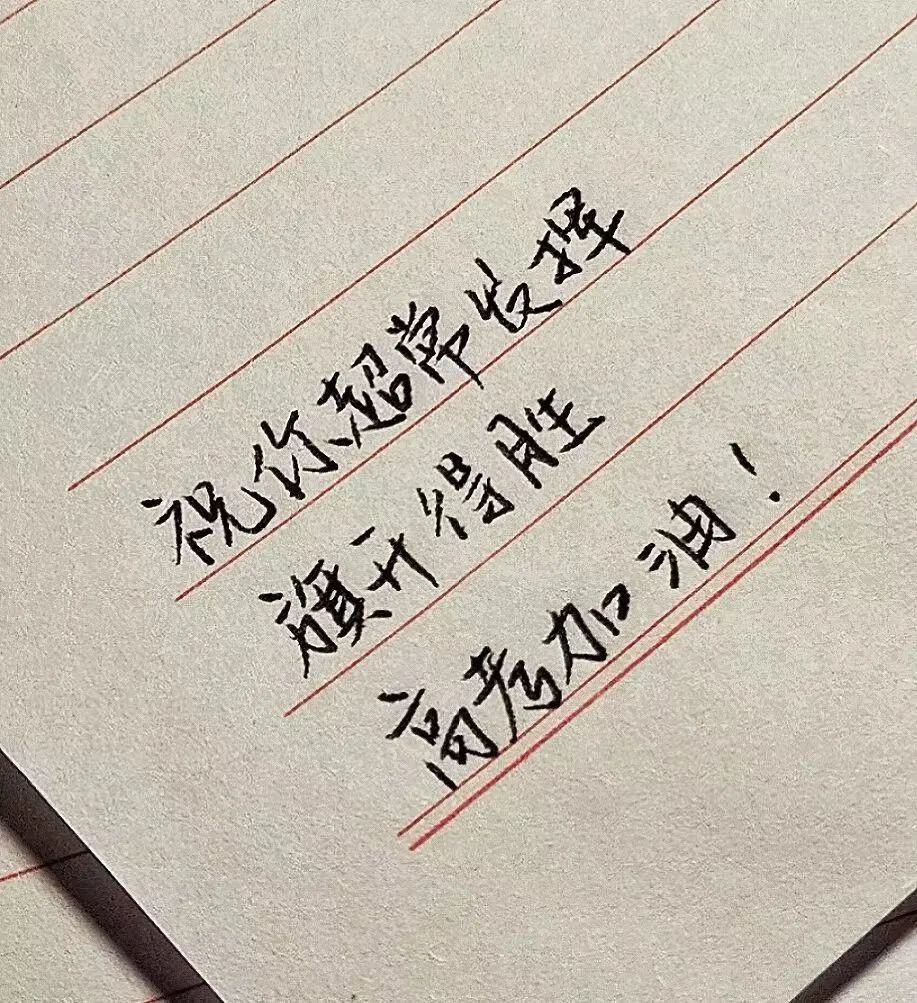 祝你超常发挥
旗开得胜
高考加油！